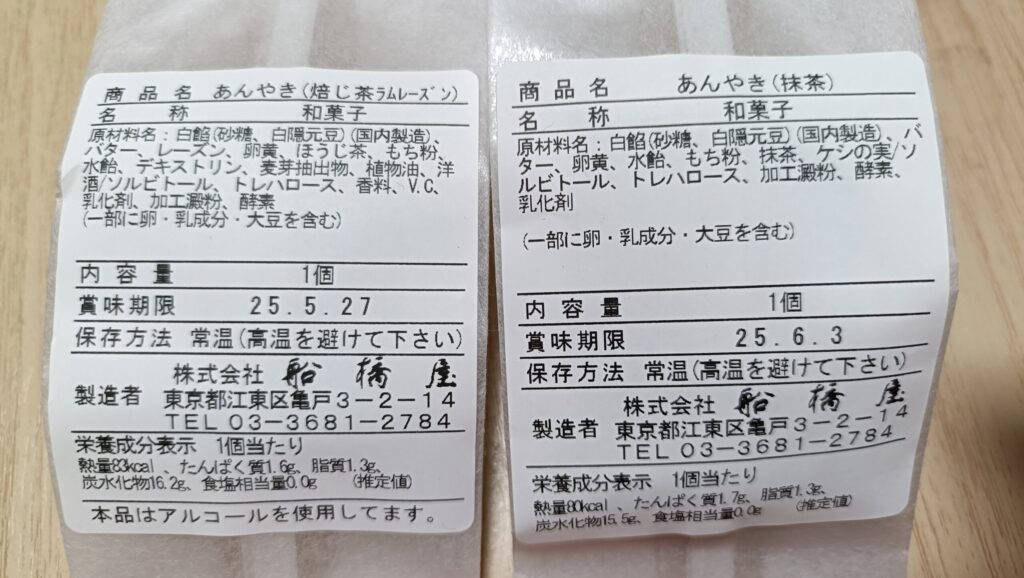 商品名 あんやき(焙じ茶ラムレーズン)
名称 和菓子
原材料名:白餡(砂糖、白隠元豆)(国内製造)、
バター、レーズン、卵黄、ほうじ茶、もち粉、
水飴、デキストリン、麦芽抽出物、植物油、洋
酒/ソルビトール、トレハロース、香料、V.C、
乳化剤、加工澱粉、酵素
(一部に卵・乳成分・大豆を含む)
内容量 1個
賞味期限 25.5.27
保存方法 常温(高温を避けて下さい)
株式会社 船橋屋
製造者 東京都江東区亀戸3-2-14
TEL 03-3681-2784
栄養成分表示 1個当たり
熱量83kcal、たんぱく質1.6g、脂質1.3g、
炭水化物16.2g、食塩相当量0.0g (推定値)
本品はアルコールを使用してます。
商品名 あんやき(抹茶)
名称 和菓子
原材料名:白餡(砂糖、白隠元豆)(国内製造)、バ
ター、卵黄、水飴、もち粉、抹茶、ケシの実/ソ
ルビトール、トレハロース、加工澱粉、酵素、
乳化剤
(一部に卵・乳成分・大豆を含む)
内容量 1個
賞味期限 25.6.3
保存方法 常温(高温を避けて下さい)
株式会社 船橋屋
製造者 東京都江東区亀戸3-2-14
TEL 03-3681-2784
栄養成分表示 1個当たり
熱量80kcal、たんぱく質1.7g、脂質1.3g、
炭水化物15.5g、食塩相当量0.0g (推定値)